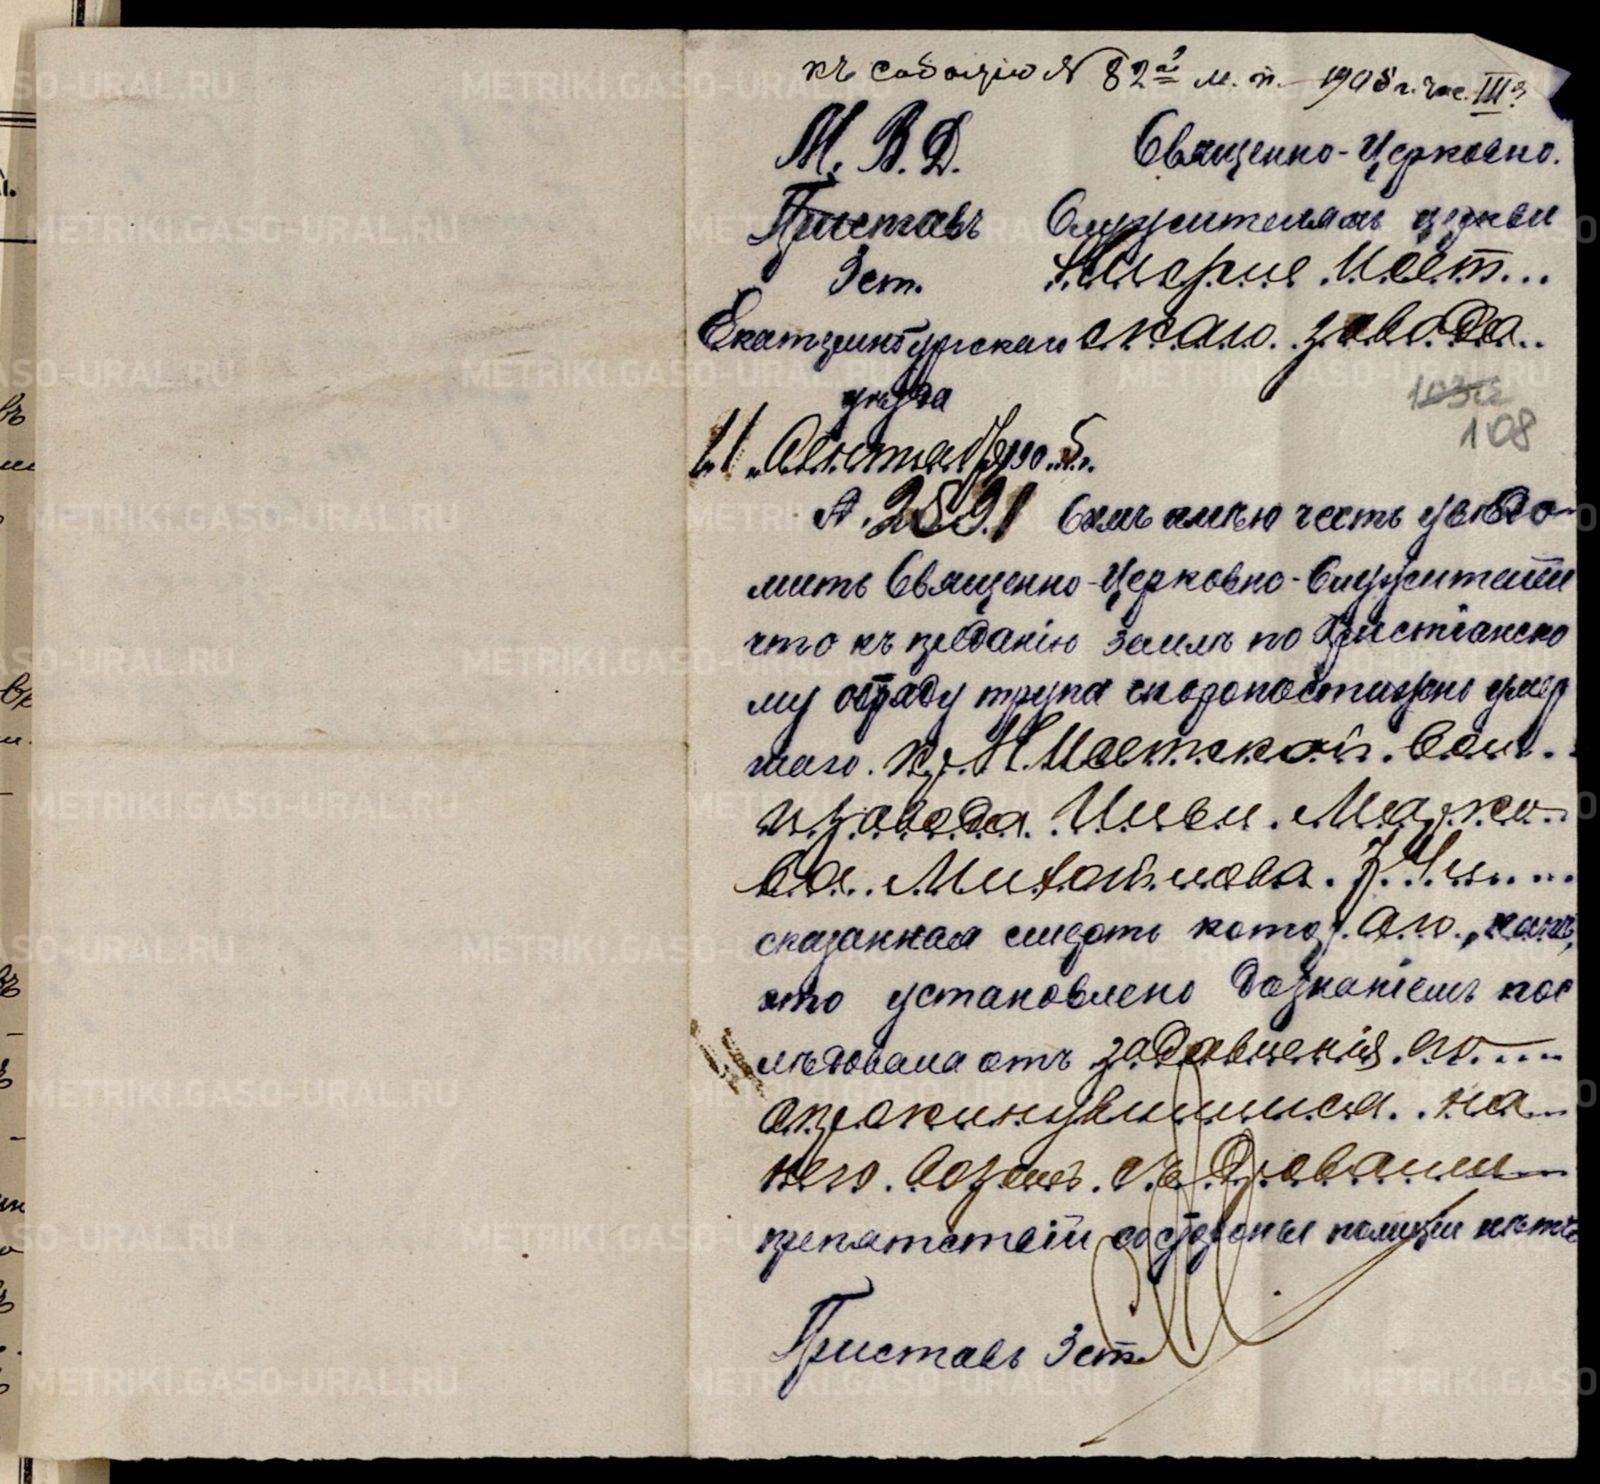 къ событію № 82й м. п. 1905 г. час. III я
М. В. Д.
Приставъ
3 ст.
Екатеринбургскаго
уѣзда
11 Сентября 1905 г.
№ 2891
Священно-Церковно.
Служителямъ церкви
Исет...
скаго завода
108
Симъ имѣю честь увѣдо-
мить Священно-Церковно-Служители
что къ преданію землѣ по Христіанско
му обряду трупа скоропостижно умер
шаго кр. Н. Исетской вол.
и завода Ильи Марко-
ва Михайлова
сказанная смерть котор. аго, какъ
это установлено дознаніемъ пос
лѣдовала отъ задавленія его
опрокинувшимся на
него возомъ съ дровами
препятствій со стороны полиціи нѣтъ
Приставъ 3 ст.
METRIKI.GASO-URAL.RU